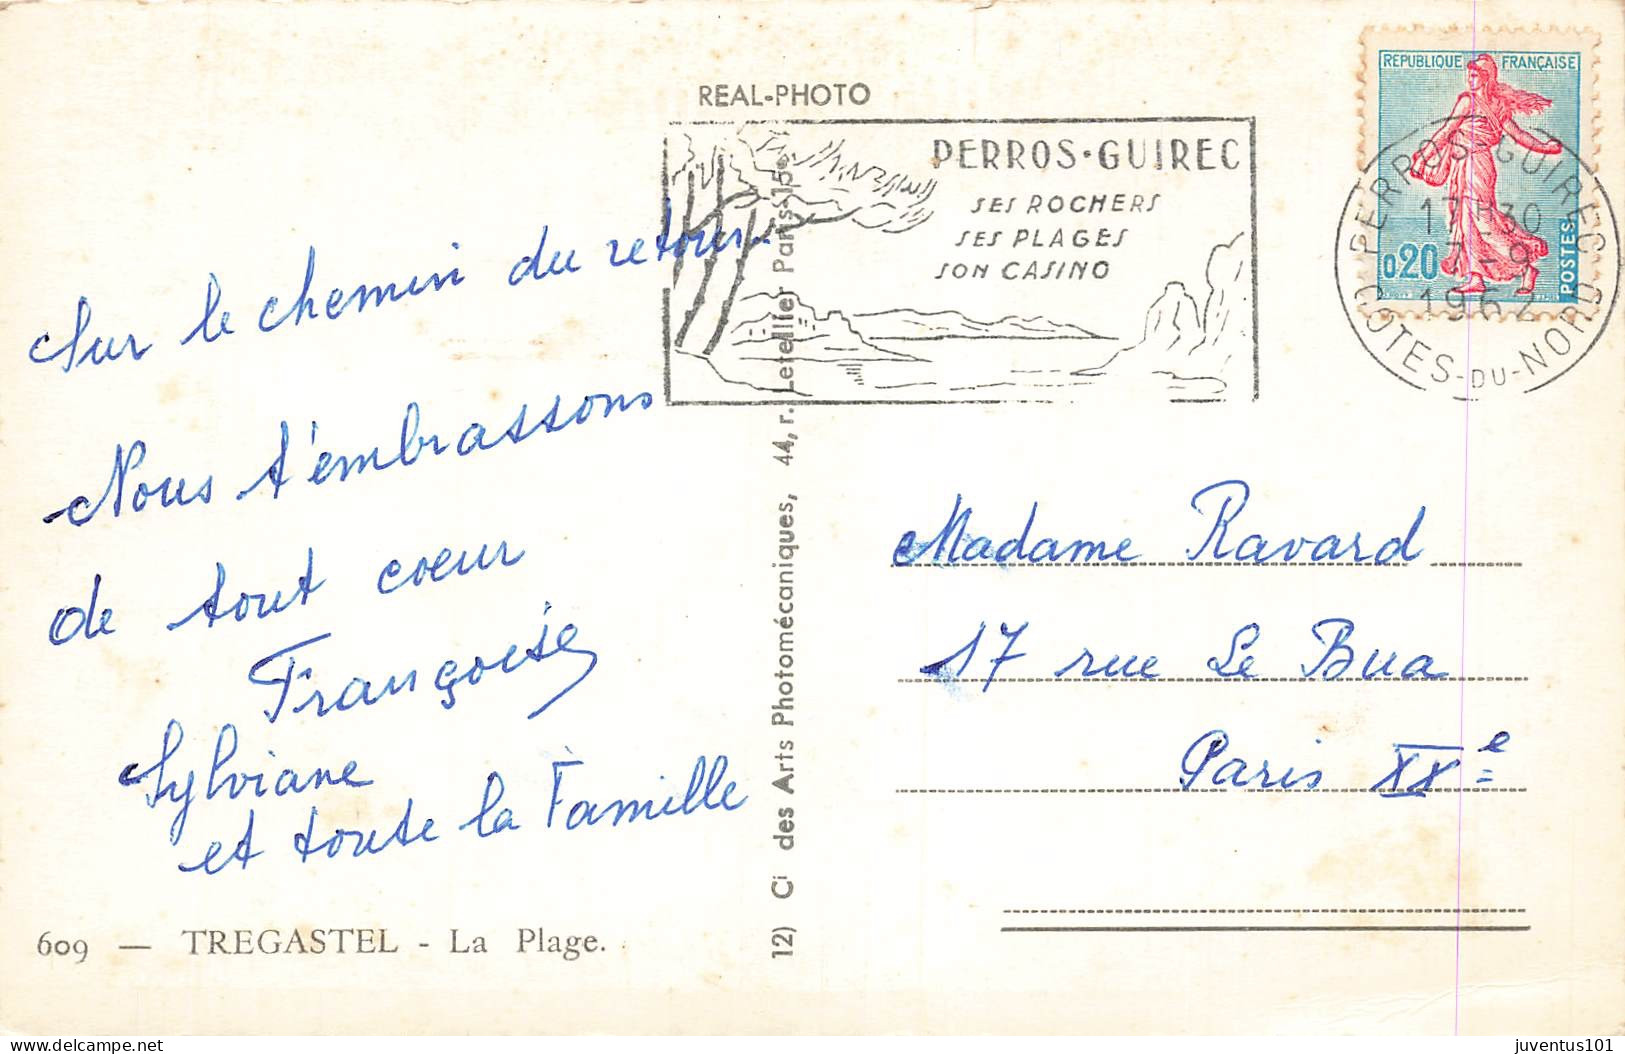 REAL-PHOTO
PERROS-GUIREC
SES ROCHERS
SES PLAGES
SON CASINO
REPUBLIQUE FRANÇAISE
0,20
POSTES
PERROS-GUIREC
17H30
7-9
1962
COTES-DU-NORD
Sur le chemin du retour.
Nous t'embrassons
de tout coeur
Françoise
Sylviane
et toute la Famille
609 — TREGASTEL - La Plage.
12) Ci des Arts Photomécaniques, 44, r. Letellier Paris-15e
Madame Ravard
17 rue Le Bua
Paris XXe
delcampe.net
juventus101